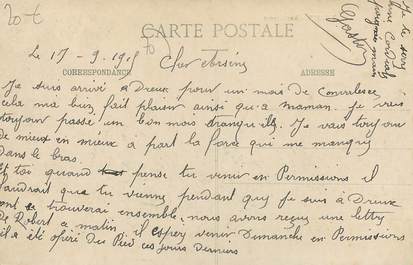 20 t
Je te serre
une cordiale
poignée main
Gaston
CARTE POSTALE
Le 17-9-19
Cher
CORRESPONDANCE
ADRESSE
Je suis arrivé a Dreux pour un mois de Convalesce
cela ma bien fait plaisir ainsi qu'a maman. Je vais
toujour passé un bon mois tranquille. Je vais toujour
de mieux en mieux a part la force qui me manque
dans le bras.
Et toi quand pense tu venir en Permissions il
faudrait que tu vienne pendant que je suis à Dreux
ont se trouverai ensemble, nous avons reçue une lettre
de Robert a matin, il espere venir Dimanche en Permissions
il a été opéré des Pied ces jours derniers